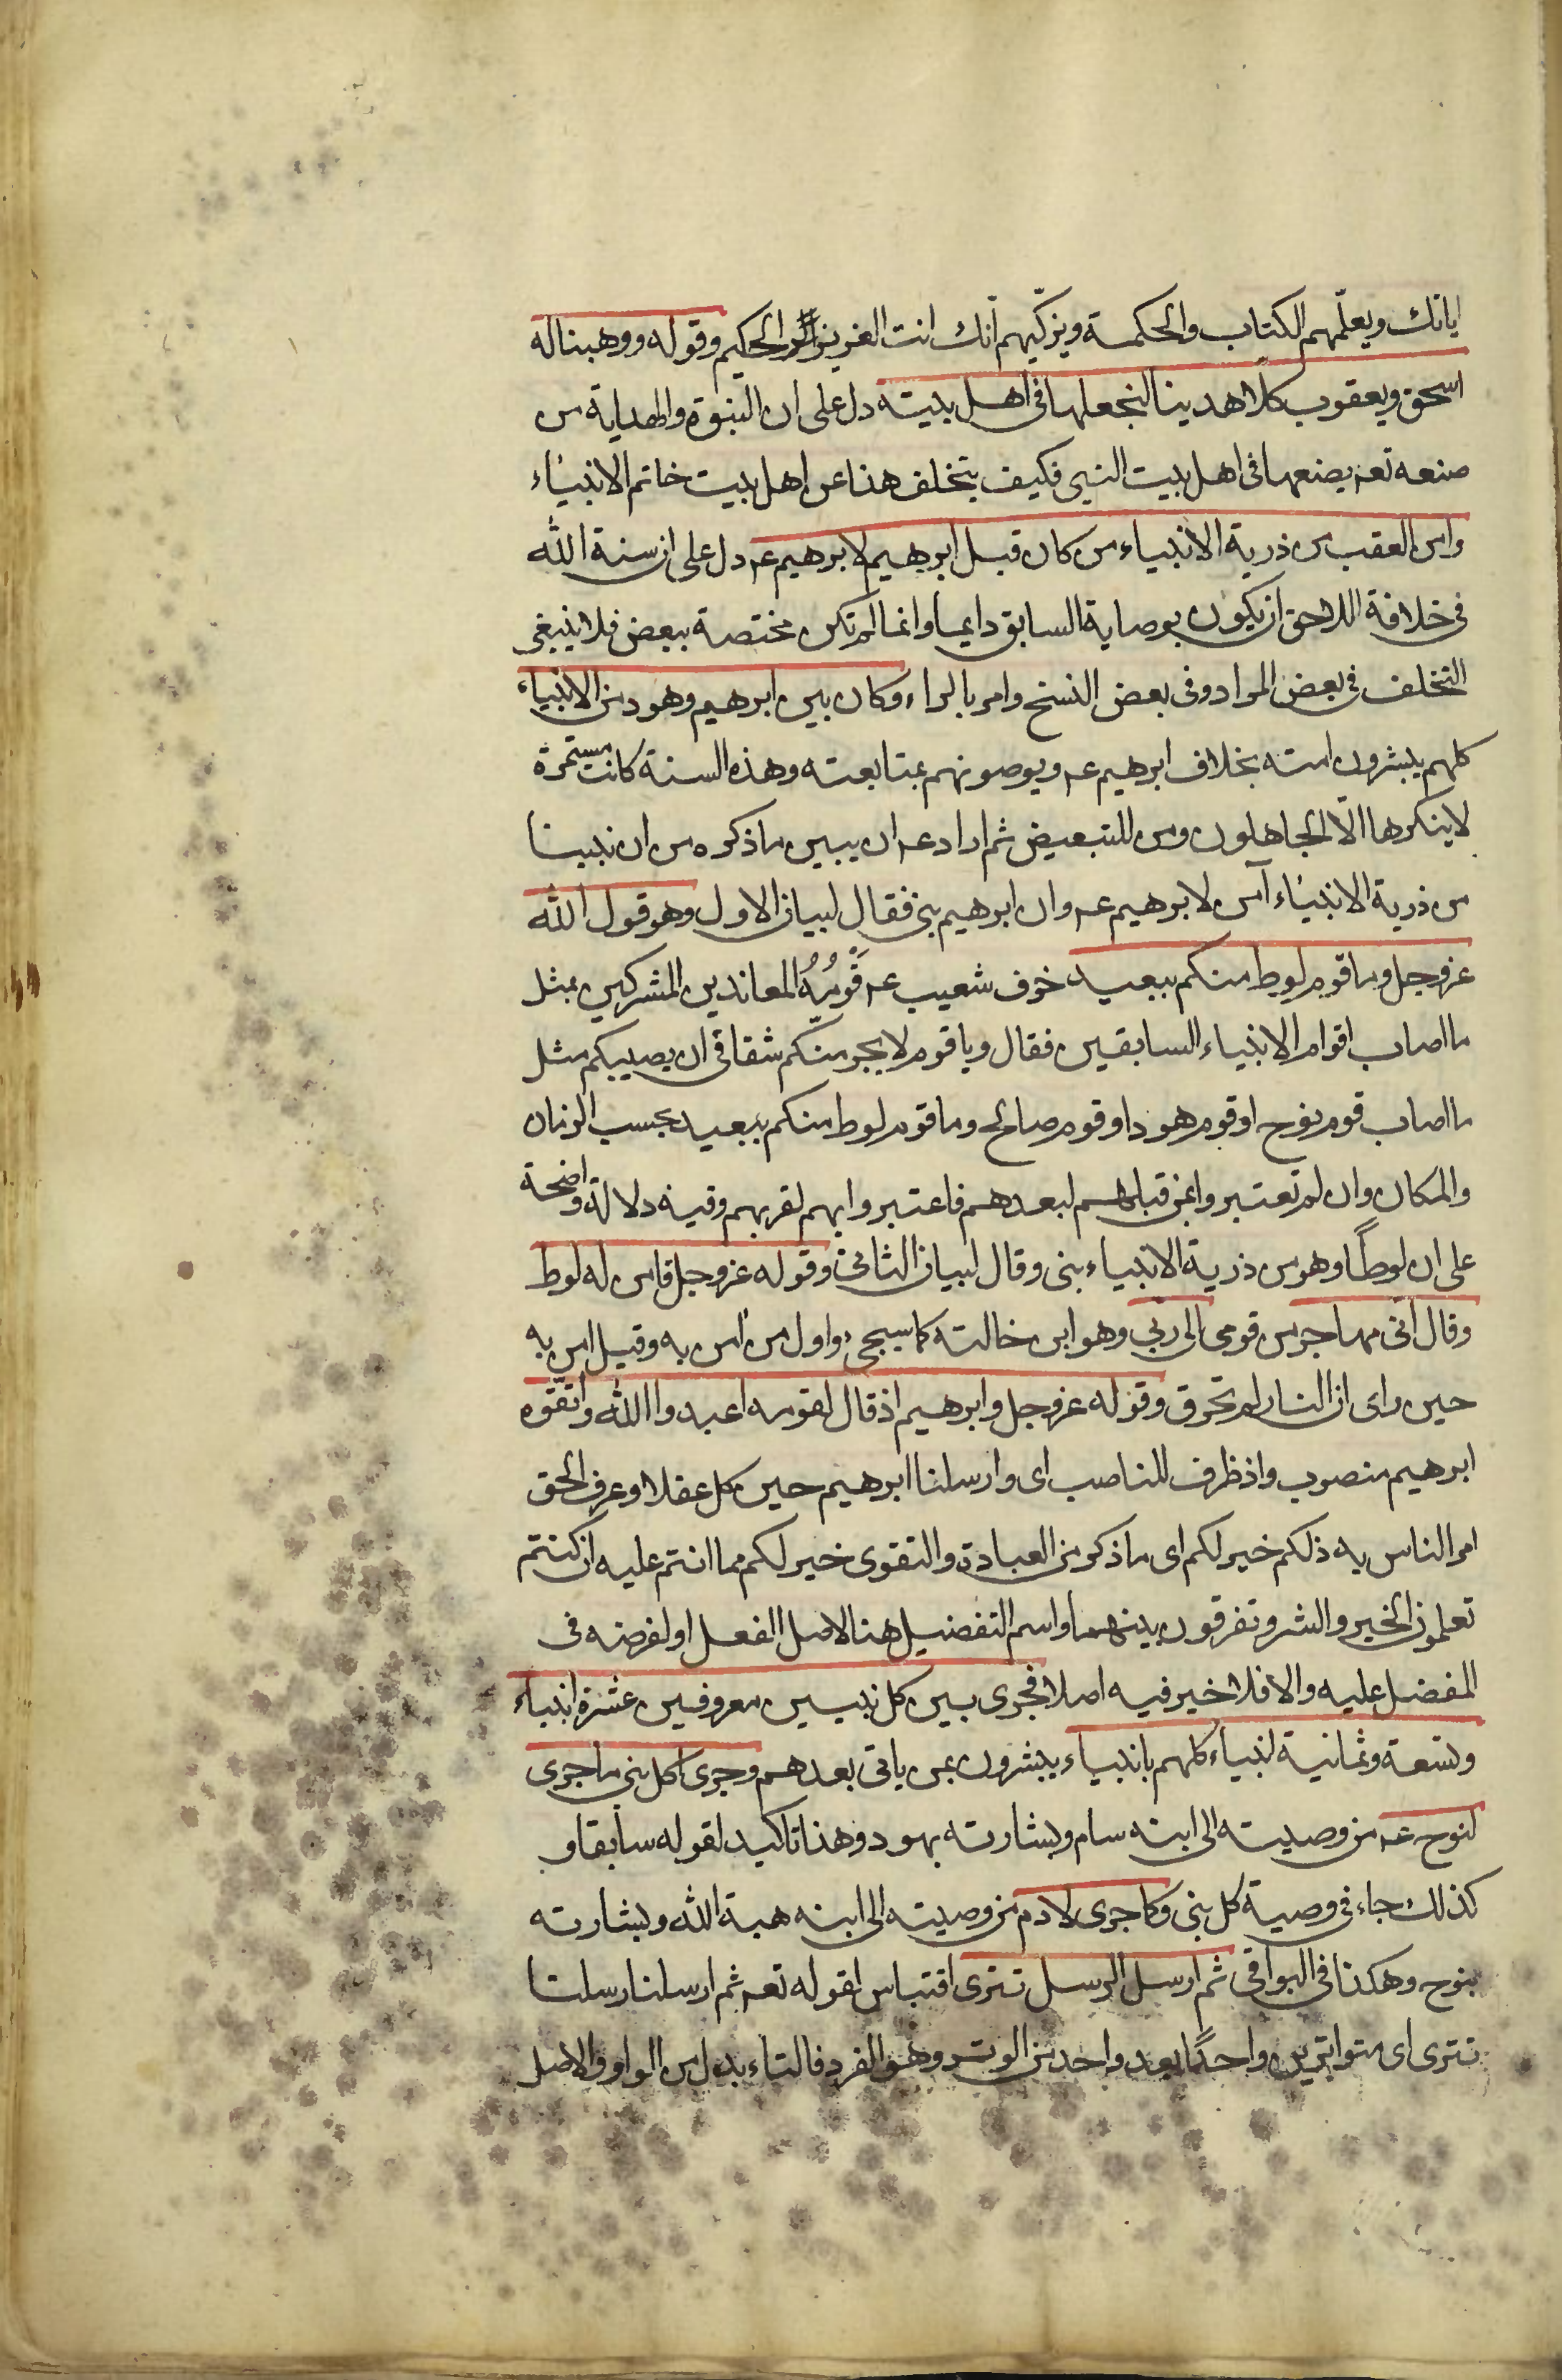 اياتك ويعلّمهم الكتاب والحكمة ويزكّيهم انّك انت العزيز الحكيم وقوله ووهبنا له
اسحق ويعقوب كلا هدينا لنجعلها فى اهل بيته دل على ان النبوة والهداية من
صنعه تعـ يصنعها فى اهل بيت النبى فكيف يتخلف هذا عن اهل بيت خاتم الانبياء
وامن العقب من ذرية الانبياء من كان قبل ابرهيم لابرهيم عـ دل على ان سنة الله
فى خلافة اللاحق ان يكون بوصاية السابق دايما وانها لم تكن مختصة ببعض فلا ينبغى
التخلف فى بعض المواد وفى بعض النسخ وامر بالراء وكان بين ابرهيم وهود من الانبياء
كلهم يبشرون امته بخلاف ابرهيم عـ ويوصونهم بمتابعته وهذه السنة كانت مستمرة
لا ينكرها الّا الجاهلون ومن للتبعيض ثم اراد عـ ان يبين ما ذكره من ان نبينا
من ذرية الانبياء آمن لابرهيم عـ وان ابرهيم نبى فقال لبيان الاول وهو قول الله
عز وجل وما قوم لوط منكم ببعيد خوف شعيب عـ قَومُهُ المعاندين المشركين بمثل
ما اصاب اقوام الانبياء السابقين فقال ويا قوم لا يجرمنكم شقاقى ان يصيبكم مثل
ما اصاب قوم نوح او قوم هود او قوم صالح وما قوم لوط منكم ببعيد بحسب الزمان
والمكان وان لم تعتبروا بمن قبلهم لبعدهم فاعتبروا بهم لقربهم وفيه دلالة واضحة
على ان لوطًا وهو من ذرية الانبياء نبى وقال لبيان الثانى وقوله عز وجل فامن له لوط
وقال انى مهاجر من قومى الى ربى وهو ابن خالته كما سيجىء واول من امن به وقيل امن به
حين راى ان النار لم تحرق وقوله عز وجل وابرهيم اذ قال لقومه اعبدوا الله واتقوه
ابرهيم منصوب واذ ظرف للناصب اى وارسلنا ابرهيم حين كمل عقلا وعرف الحق
امر الناس به ذلكم خير لكم اى ما ذكر من العبادة والتقوى خير لكم مما انتم عليه ان كنتم
تعلمون الخير والشر وتفرقون بينهما واسم التفضيل هنا لاصل الفعل او لفرضه فى
المفضل عليه والا فلا خير فيه اصلا فجرى بين كل نبيين معروفين عشرة انبياء
وتسعة وثمانية انبياء كلهم بانبياء يبشرون بمن ياتى بعدهم وجرى لكل نبى ما جرى
لنوح عـ من وصيته الى ابنه سام وبشارته بهود وهذا تاكيد لقوله سابقا و
كذلك جاء فى وصية كل نبى وكما جرى لادم من وصيته الى ابنه هبة الله وبشارته
بنوح وهكذا فى البواقى ثم ارسل الرسل تترى اقتباس لقوله تعـ ثم ارسلنا رسلنا
تترى اى متواترين واحدًا بعد واحد من الوتر وهو الفرد فالتاء بدل من الواو والاصل